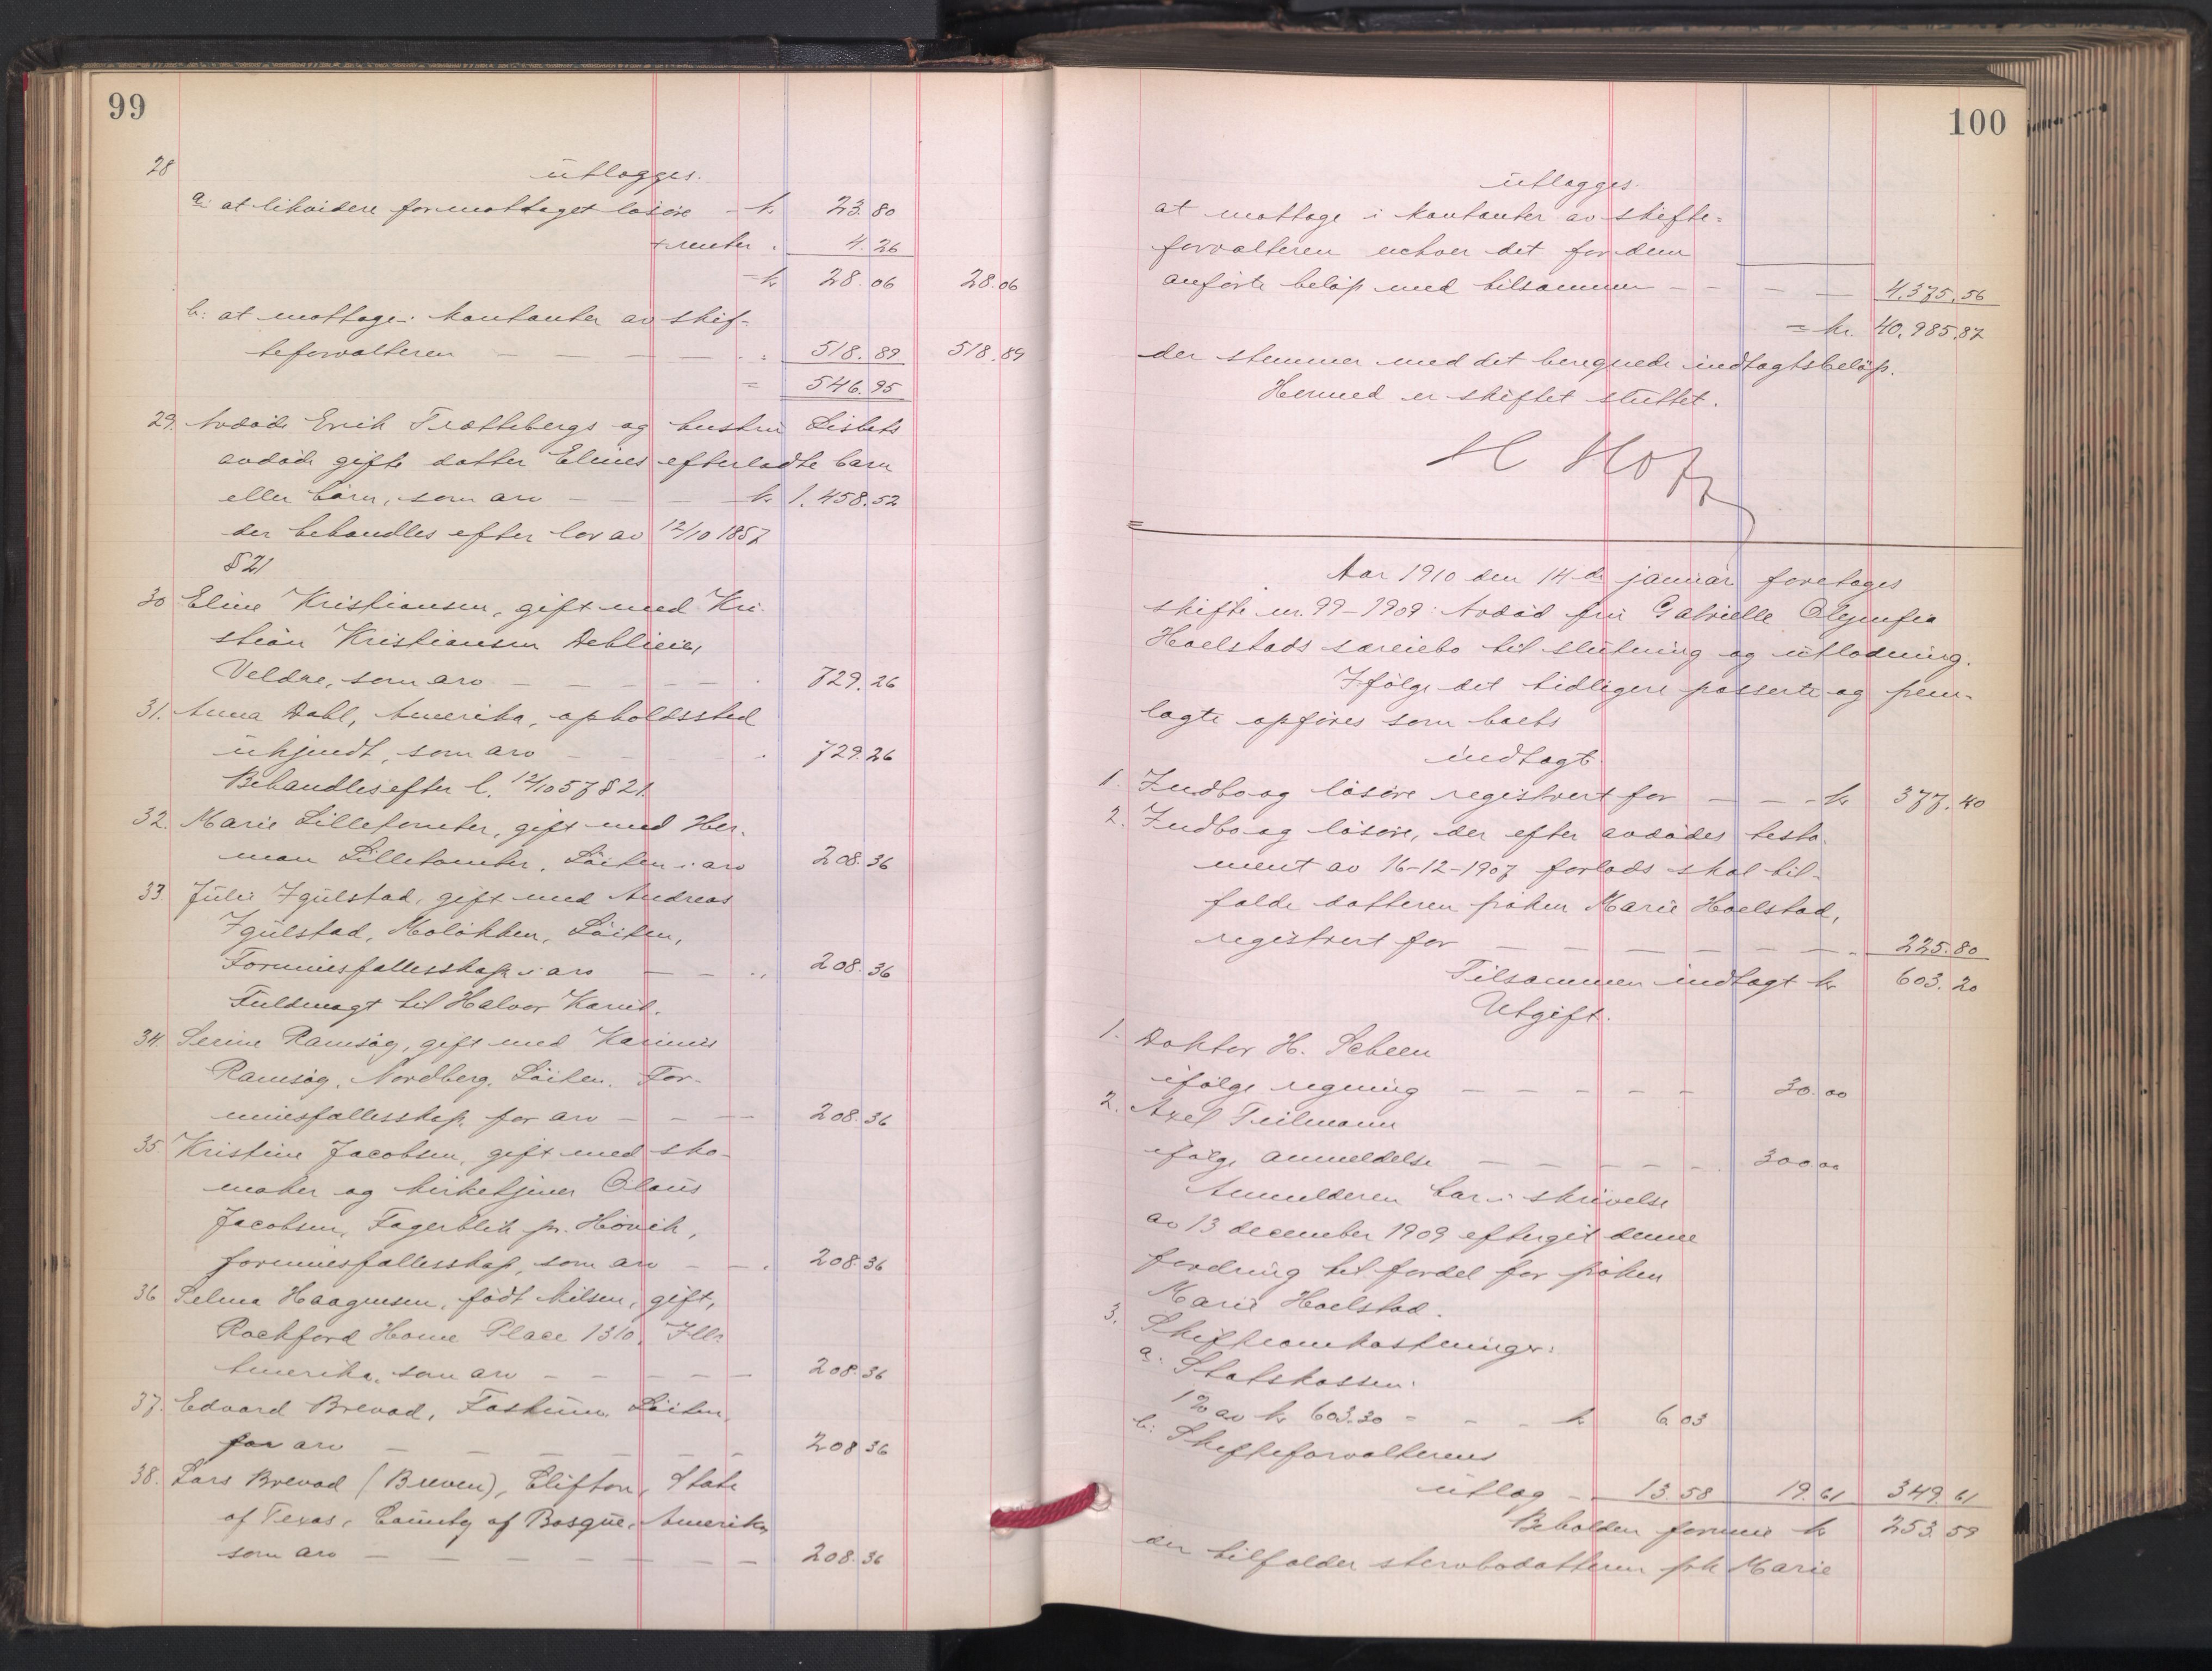 99
28 utlægges.
a: at likvidere for mottaget løsøre - kr 23.80
+ renter . 4.26
= kr 28.06 28.06
b: at mottage i kontanter av skif-
teforvalteren — — — — . : 518.89 518.89
= 546.95
29. Avdøde Erik Trættebergs og hustru Lisbets
avdøde gifte datter Elines efterladte barn
eller børn, som arv — — — kr 1.458.52
der behandles efter lov av 12/10 1857
§ 21
30 Eline Kristiansen, gift med Kri-
stian Kristiansen
Veldre, som arv — — — — — . 729.26
31. Anna Dahl, Amerika, opholdssted
ukjendt, som arv — — — . 729.26
Behandles efter l. 12/10 57 § 21.
32. Marie Lilletomter, gift med Her-
man Lilletomter, Løiten i arv 208.36
33 Julie Igulstad, gift med Andreas
Igulstad, Moløkken, Løiten,
Formuesfællesskap i arv — — . , 208.36
Fuldmagt til Halvor Karud.
34 Serine Ramsøg, gift med Karinus
Ramsøg, Nordberg, Løiten. For-
muesfællesskap, for arv — — — 208.36
35 Kristine Jacobsen, gift med sko-
maker og kirketjener Olaus
Jacobsen, Fagerblik pr. Høvik,
formuesfællesskap, som arv — — . 208.36
36 Selma Haagensen, født Nilsen, gift,
Rockford Home Place 1310, Ills
Amerika, som arv — — — — — 208.36
37. Edvard Brevad, Løiten,
for arv — — — — — — 208.36
38. Lars Brevad (Breven), Clifton, State
of Texas, County of Bosque, Amerika
som arv — — — — — — — 208.36
100
utlægges.
at mottage i kontanter av skifte-
forvalteren enhver det for dem
anførte beløp med tilsammen — — — — 4.375.56
= kr. 40.985.87
der stemmer med det beregnede indtægtsbeløp.
Hermed er skiftet sluttet.
Aar 1910 den 14de januar foretages
skifte nr. 99-1909: Avdød fru Gabrielle Olymfia
Hoelstads særeiebo til slutning og utlodning.
Ifølge det tidligere passerte og frem-
lagte opføres som boets
indtægt.
1. Indbo og løsøre registrert for — — - kr 377.40
2. Indbo og løsøre, der efter avdødes testa-
ment av 16-12-1907 forlods skal til-
falde datteren frøken Marie Hoelstad,
registrert for — — — — — — — . 225.80
Tilsammen indtægt kr 603.20
Utgift.
1. Doktor H. Scheen
ifølge regning — — — — — 30.00
2. Axel Teilmann
ifølge anmeldelse — — — — — . 300.00
Anmelderen har i skrivelse
av 13 december 1909 eftergit denne
fordring til fordel for frøken
Marie Hoelstad.
3. Skifteomkostninger:
a. Statskassen:
1% av kr 603.20 - - - kr 6.03
b: Skifteforvalterens
utlæg - 13.58 19.61 349.61
Beholden formue kr 253.59
der tilfalder stervbodatteren frk Marie